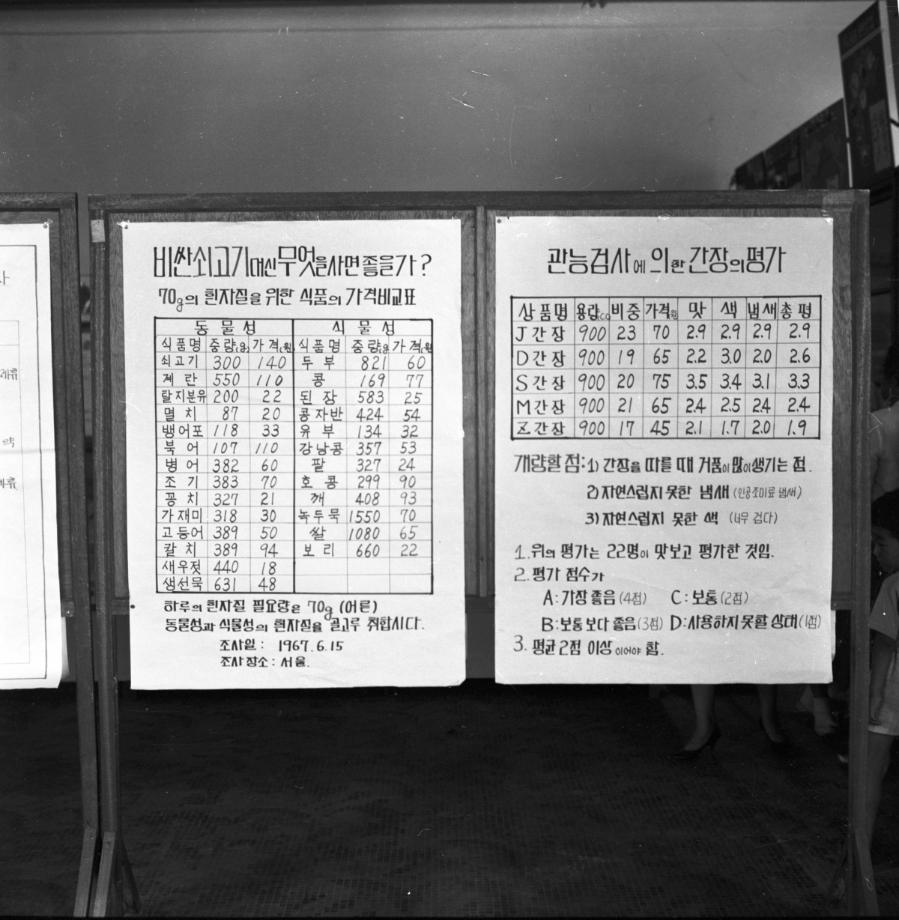 비싼 쇠고기 대신 무엇을 사면 좋을가?
70g의 흰자질을 위한 식품의 가격비교표
동물성 식물성
식품명 중량(g) 가격(원) 식품명 중량(g) 가격(원)
쇠고기 300 140 두부 821 60
계란 550 110 콩 169 77
탈지분유 200 22 된장 583 25
멸치 87 20 콩자반 424 54
뱅어포 118 33 유부 134 32
북어 107 110 강남콩 357 53
병어 382 60 팥 327 24
조기 383 70 호콩 299 90
꽁치 327 21 깨 408 93
가재미 318 30 녹두묵 1550 70
고등어 389 50 쌀 1080 65
갈치 389 94 보리 660 22
새우젓 440 18
생선묵 631 48
하루의 흰자질 필요량은 70g (어른)
동물성과 식물성의 흰자질을 골고루 취합시다.
조사일 : 1967.6.15
조사장소 : 서울.
관능검사에 의한 간장의 평가
상품명 용량CC 비중 가격원 맛 색 냄새 총평
J간장 900 23 70 2.9 2.9 2.9 2.9
D간장 900 19 65 2.2 3.0 2.0 2.6
S간장 900 20 75 3.5 3.4 3.1 3.3
M간장 900 21 65 2.4 2.5 2.4 2.4
Z간장 900 17 45 2.1 1.7 2.0 1.9
개량할 점: 1) 간장을 따를 때 거품이 많이 생기는 점.
2) 자연스럽지 못한 냄새 (인공조미료 냄새)
3) 자연스럽지 못한 색 (너무 검다)
1. 위의 평가는 22명이 맛보고 평가한 것임.
2. 평가 점수가
A: 가장 좋음 (4점) C: 보통 (2점)
B: 보통보다 좋음 (3점) D: 사용하지 못할 상태 (1점)
3. 평균 2점 이상이어야 함.